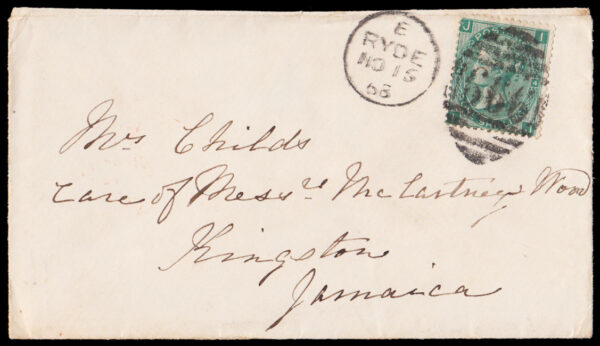 E
RYDE
NO 15
68
J I
Mrs Childs
care of Messrs McCartney Wood
Kingston
Jamaica